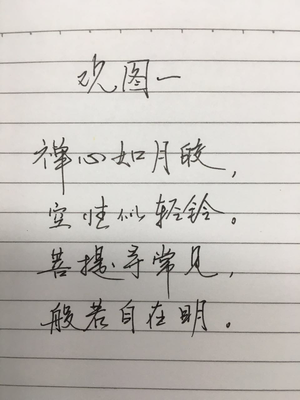 观图一
禅心如月皎，
空性似轻铃。
菩提寻常见，
般若自在明。